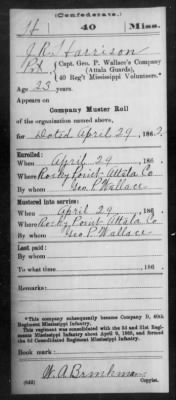 (Confederate.)
H 40 Miss.
J. R. Harrison
Pvt, Capt. Geo. P. Wallace's Company
(Attala Guards),
40 Reg't Mississippi Volunteers.*
Age 23 years.
Appears on
Company Muster Roll
of the organization named above,
for Dated April 29, 1862.
Enrolled:
When April 29, 186 .
Where Rocky Point Attala Co
By whom Geo. P. Wallace
Mustered into service:
When April 29, 186 .
Where Rocky Point Attala Co
By whom Geo. P. Wallace
Last paid:
By whom
To what time , 186 .
Remarks:
*This company subsequently became Company D, 40th
Regiment Mississippi Infantry.
This regiment was consolidated with the 3d and 31st Regi-
ments Mississippi Infantry about April 9, 1865, and formed
the 3d Consolidated Regiment Mississippi Infantry.
Book mark:
W. A. Brinkman
(642) Copyist.